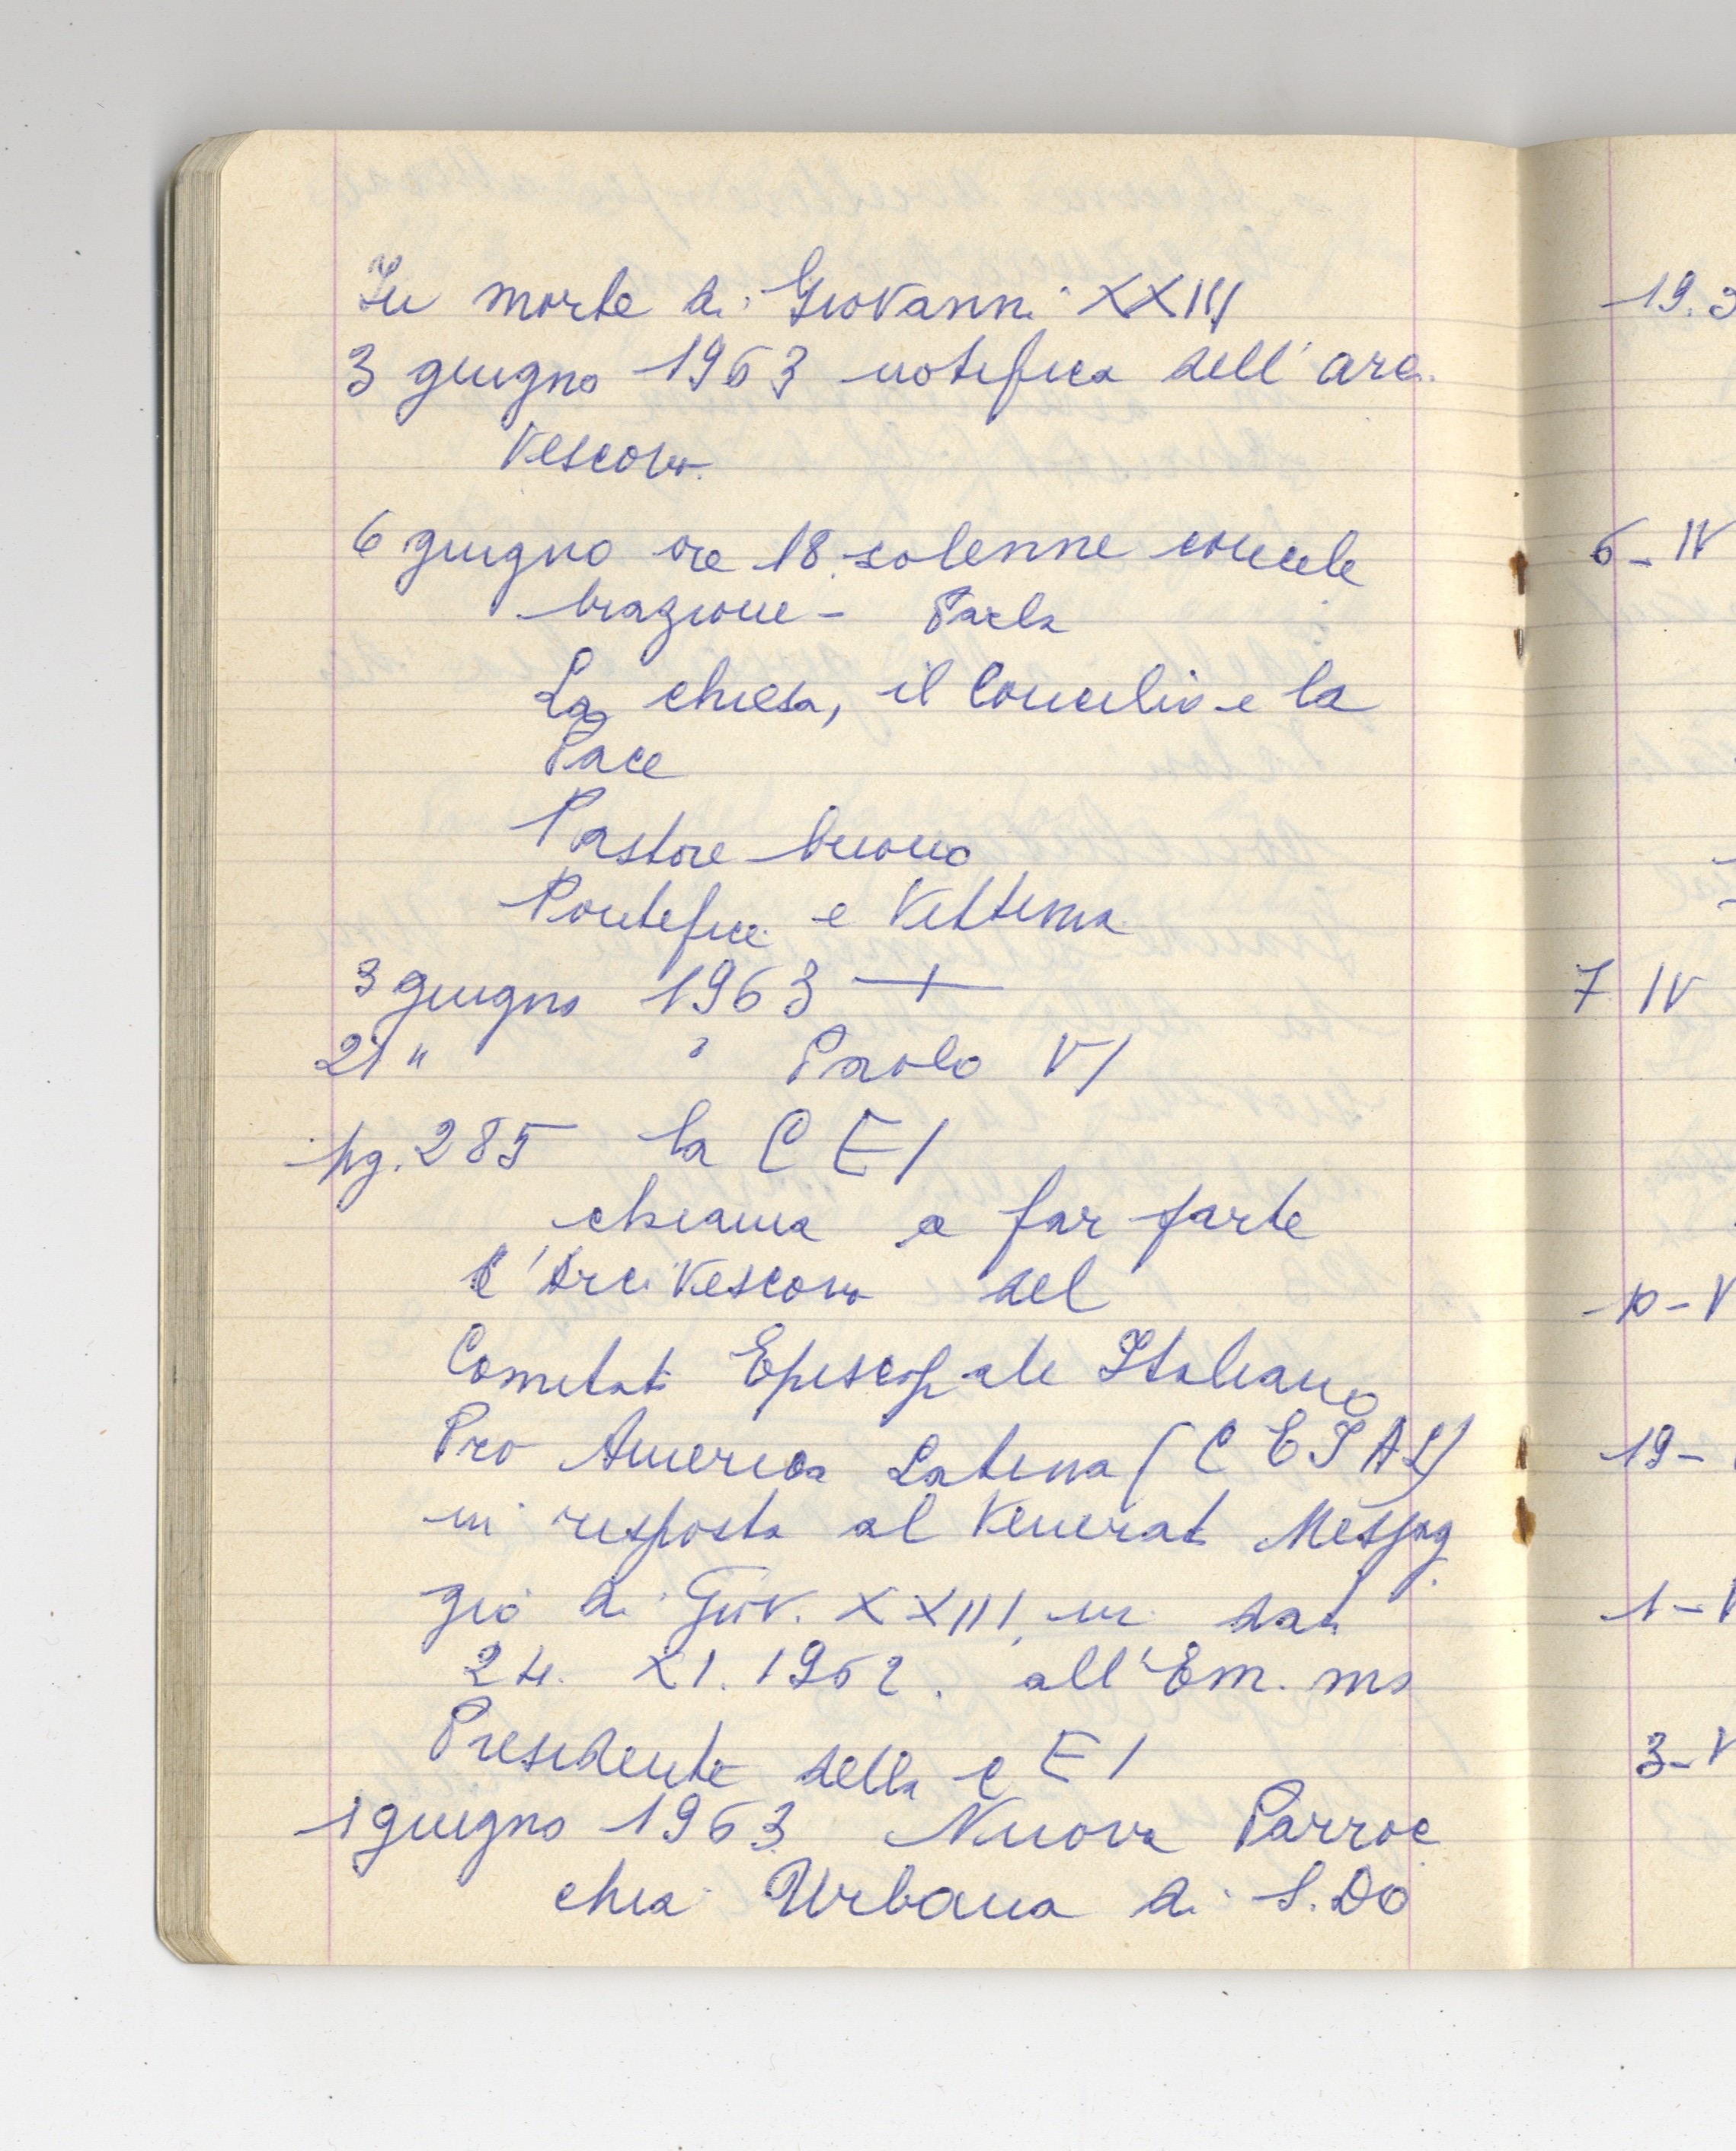 In morte di Giovanni XXIII
3 giugno 1963 notifica dell'arc.
Vescovo.
6 giugno ore 18. solenne concele
brazione - Parla
La chiesa, il Concilio e la
Pace
Pastore buono
Pontefice e Vittima
3 giugno 1963 +
21 " " Paolo VI
pg. 285 la CEI
chiama a far parte
l'Arcivescovo del
Comitato Episcopale Italiano
Pro America Latina (CEIAL)
in risposta al Venerat Messag
gio di Giov. XXIII, in data
24. XI. 1962. all'Em. mo
Presidente della CEI
1 giugno 1963 Nuova Parroc
chia Urbana di S. Do
19. 3
6 - IV
7 IV
10 - V
19 -
1 - V
3 - V